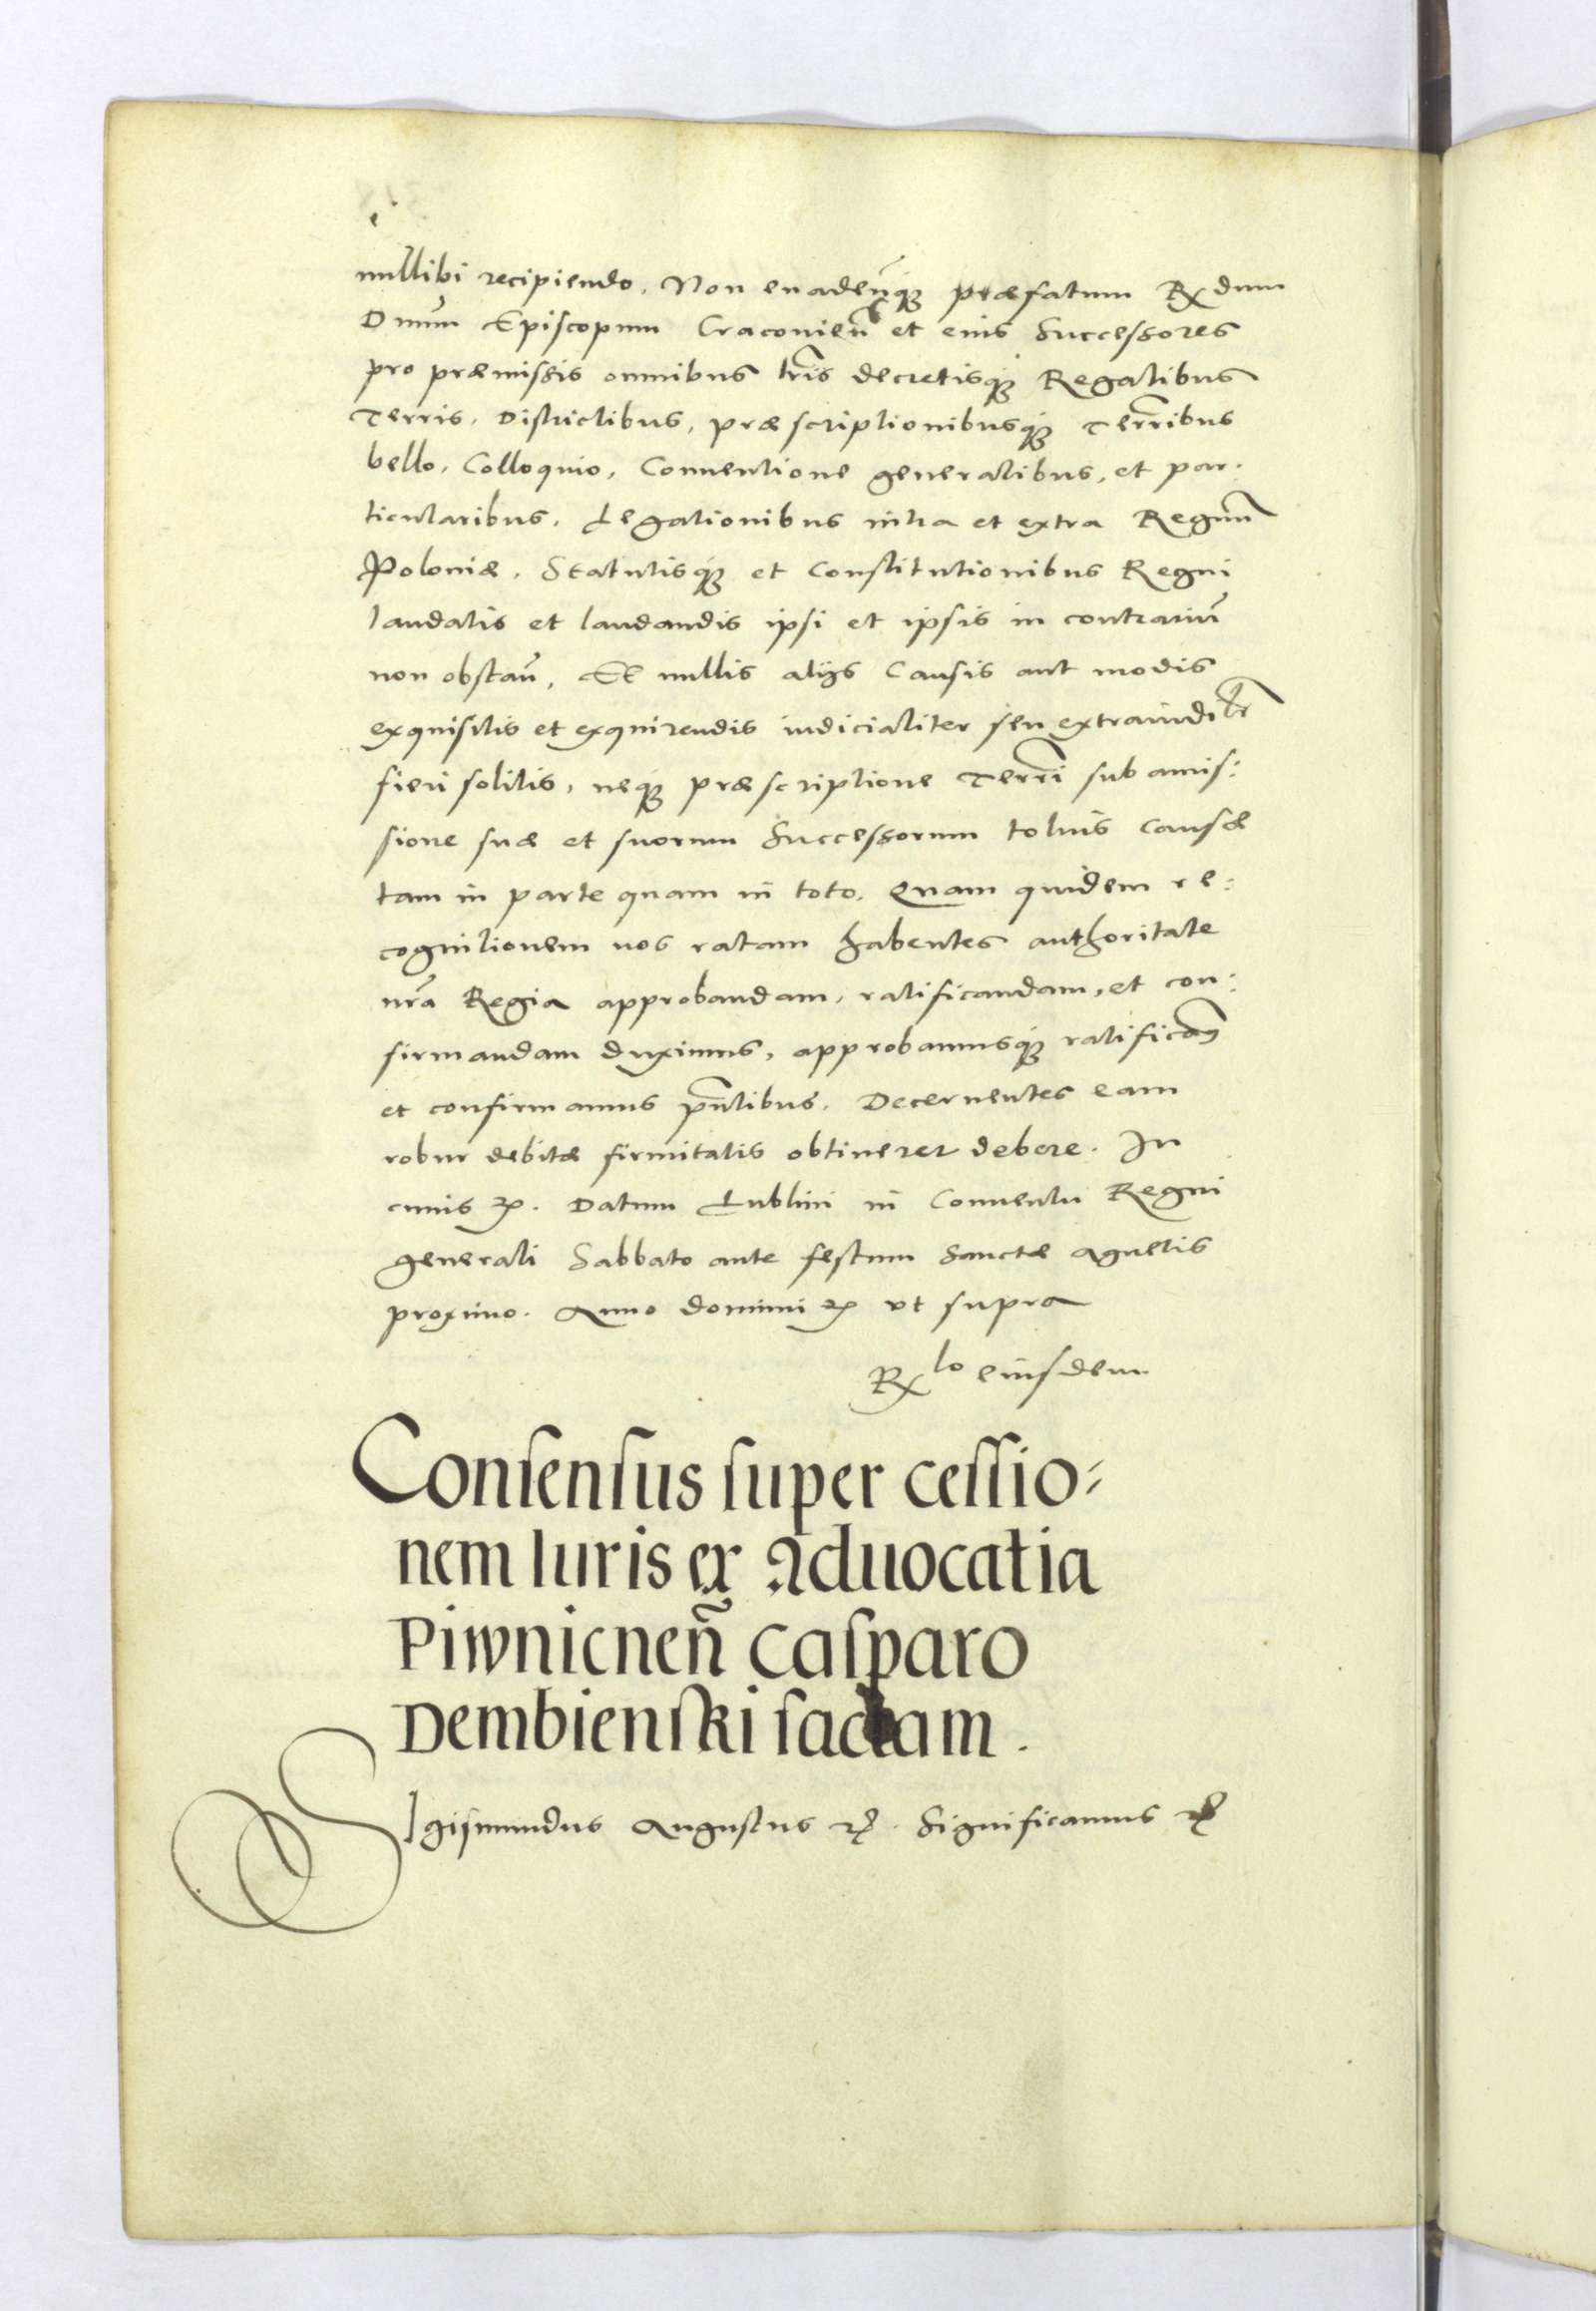 nullibi recipiendo. Non evadenq̃ꝫ præfatum Rx dum
Dnũm Episcopum Cracovieñ et eius Successores
pro præmissis omnibus lr̃is decretisqꝫ Regalibus
Terris, Districtibus, præscriptionibusqꝫ Terr̃ibus
bello, Colloquio, Conventione generalibus, et par.
ticularibus, Legationibus intra et extra Regnũ
Poloniæ, Statutisqꝫ et Constitutionibus Regni
laudatis et laudandis ipsi et ipsis in contrariũ
non obstañ, Et nullis alijs Causis aut modis
exquisitis et exquirendis iudicialiter seu extraiudilr̃
fieri solitis, neqꝫ præscriptione Terr̃i sub amis:
sione suæ et suorum Successorum totius causæ
tam in parte quam in toto. Quam quidem re:
cognitionem nos ratam habentes authoritate
nr̃a Regia approbandam, ratificandam, et con:
firmandam duximus, approbamusqꝫ ratificam̃9
et confirmamus pñtibus. Decernentes eam
robur debitæ firmitatis obtinerer debere. In
cuius ꝝ. Datum Lublini in Conventu Regni
generali Sabbato ante festum Sanctæ Agnetis
proximo. Anno domini ꝝ vt supra
Rx lo eiusdem
Consensus super cessio=
nem Iuris ex Aduocatia
Piwnicneñ Casparo
Dembienski factam.
SIgismundus Augustus ꝝ. Significamus ꝝ